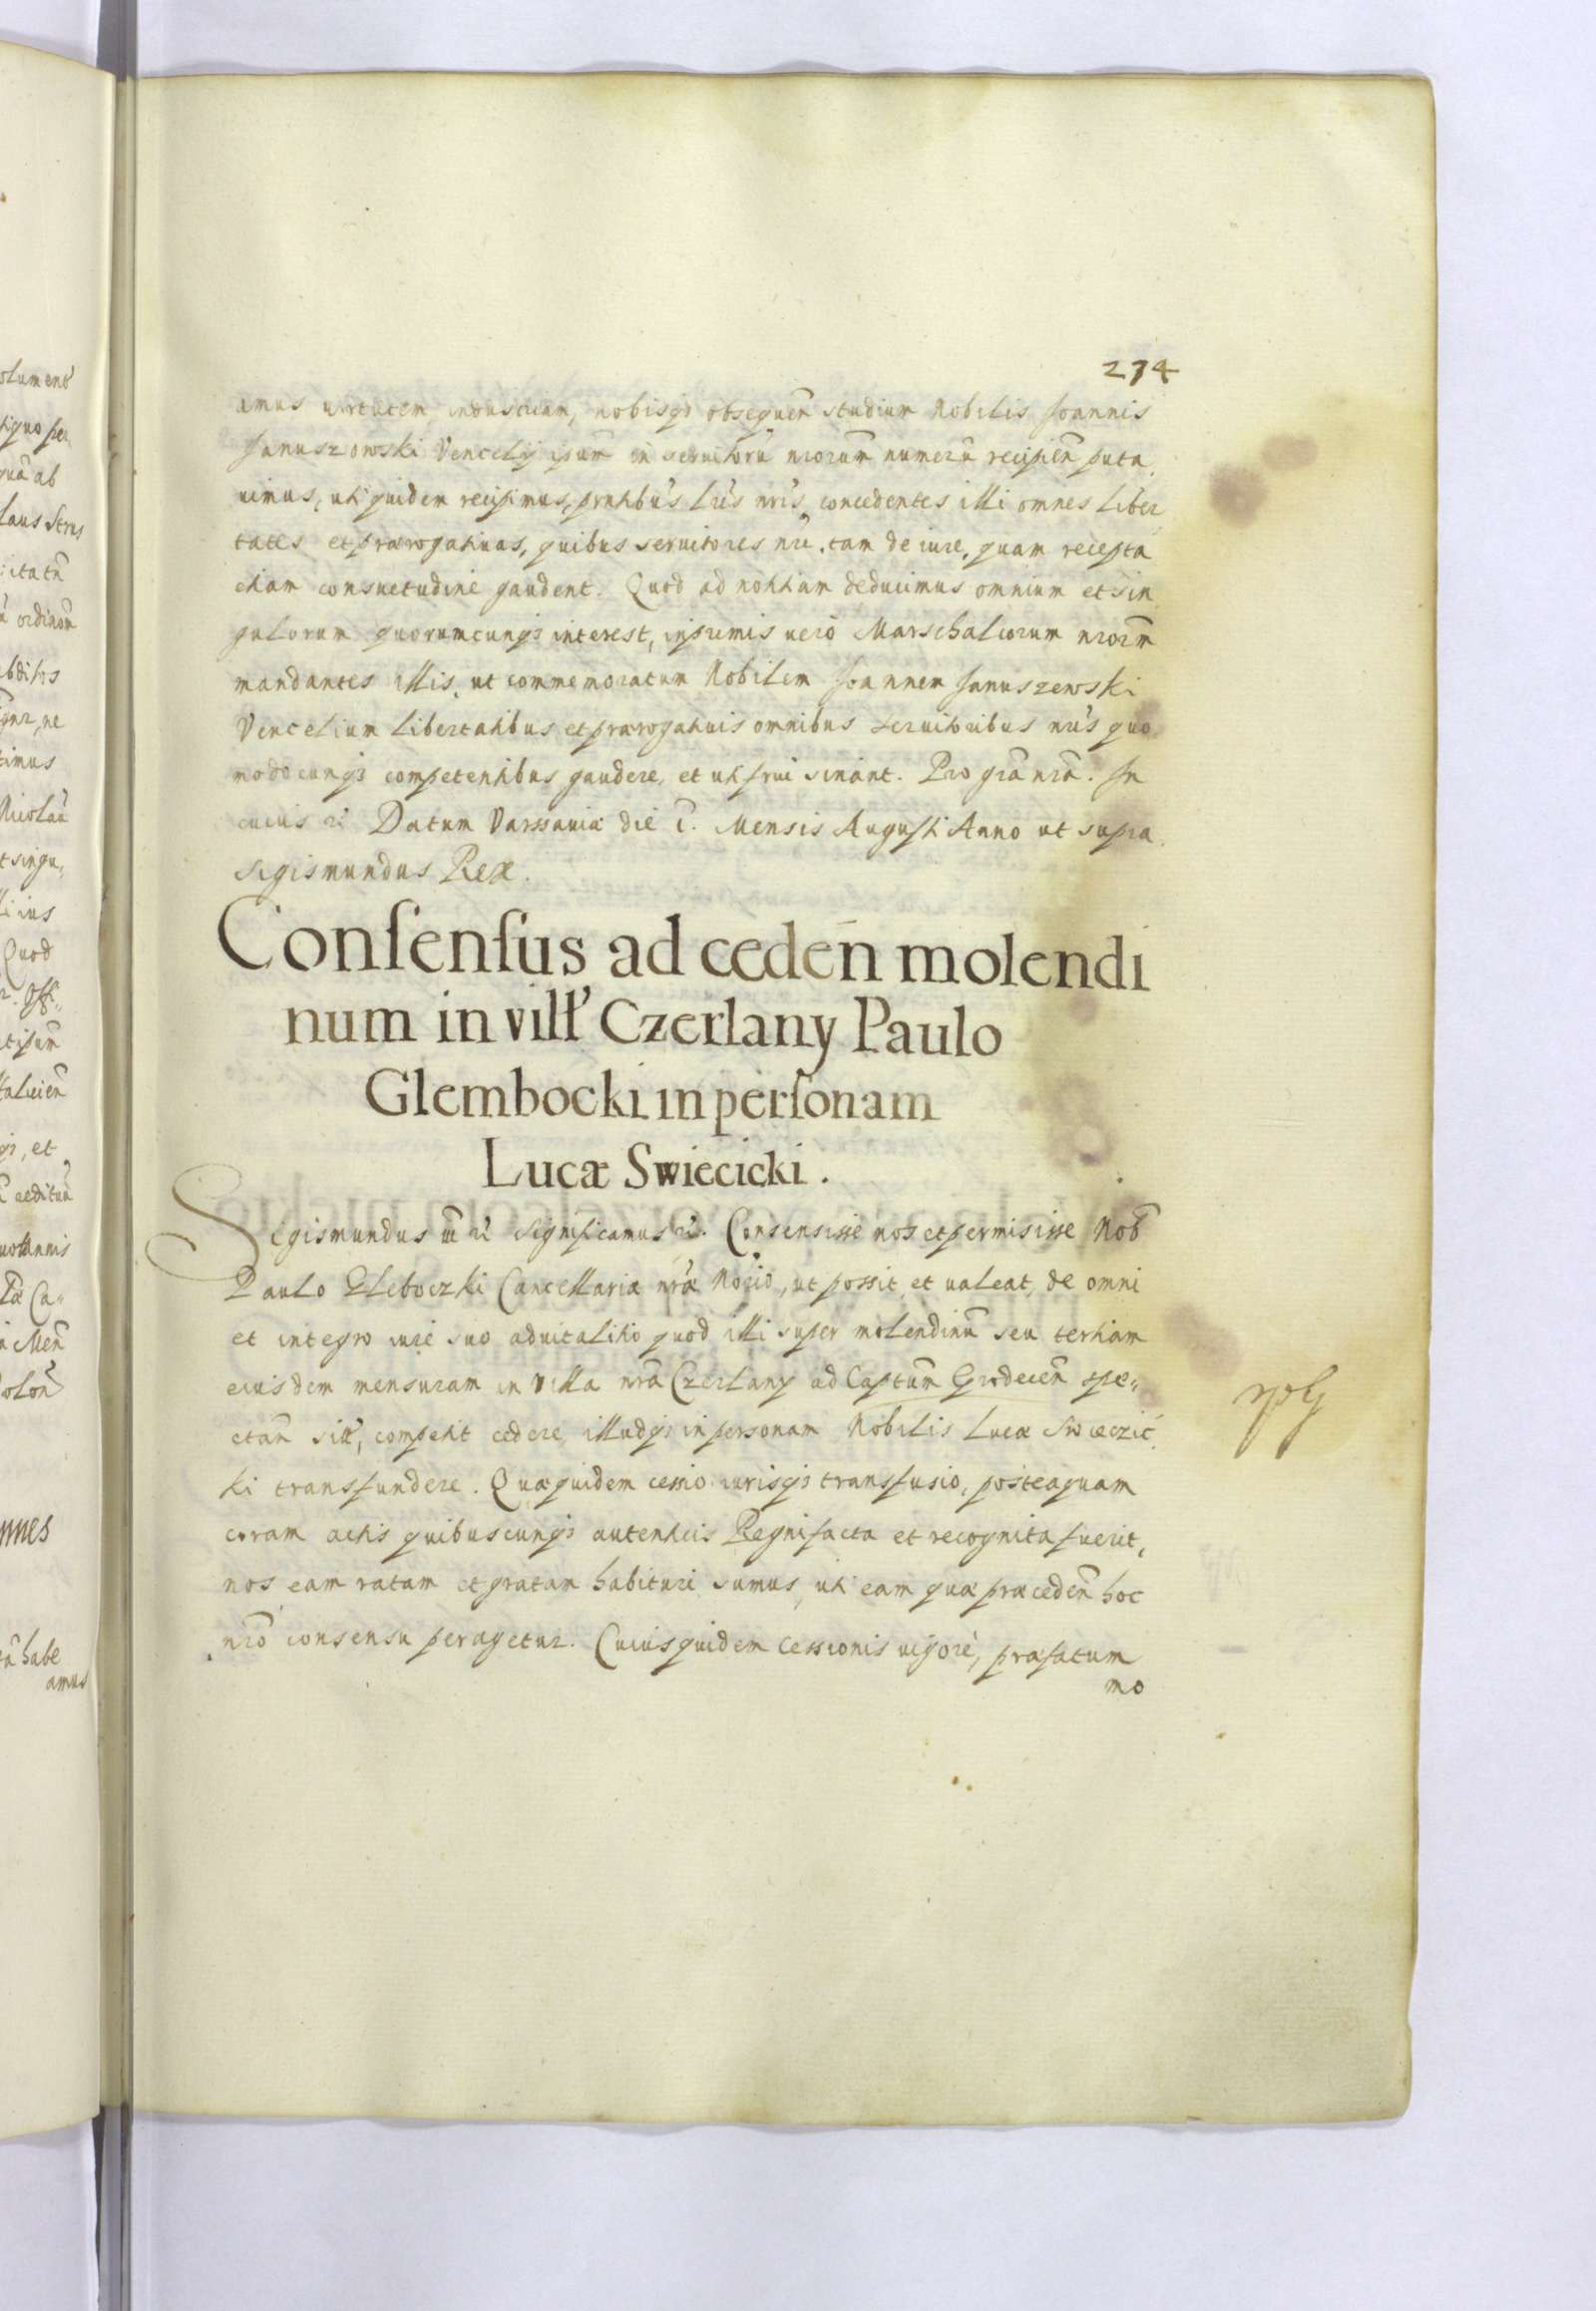 274
amus virtutem industriam, nobisq3 obsequen̄ studium Nobilis Joannis
Januszowski Vencelij ipsum̄ in seruitorū nrorum̄ numerū recipien̄ puta
uimus, uti quidem recipimus, pntibus Lris nris, concedentes illi omnes liber
tates et prærogatiuas, quibus seruitores nri, tam de iure, quam recepta
etiam consuetudine gaudent. Quod ad notitiam deducimus omnium et sin
gulorum quorumcunq3 interest, inprimis uero Marschalcorum nrorm̄
mandantes illis, ut commemoratum Nobilem Joannem Januszewski
Vencelium libertatibus et prærogatiuis omnibus seruitoribus nris quo
modocunq3 competentibus gaudere, et uti frui sinant. Pro grā nrā. In
cuius rei Datum Varssauiæ die i. Mensis Augusti Anno ut supra.
Sigismundus Rex.
Conſenſus ad ceden̄ molendi
num in vill' Czerlany Paulo
Glembocki in perſonam
Lucæ Swiecicki.
Sigismundus iii rc significamus rc. Consensisse nos et permisisse Nob̄
Paulo Gleboczki Cancellariæ nræ Norio, ut possit, et ualeat, de omni
et integro iure suo aduitalitio quod illi super molendinū seu tertiam
eiusdem mensuram in Villa nrā Czerlany ad Captum̄ Grodecen̄ spe„
ctan̄ sitt, competit cedere, illudq3 in personam Nobilis Lucæ Swieczic
ki transfundere. Quæquidem cessio iurisq3 transfusio, posteaquam
coram actis quibuscunq3 autenticis Regni facta et recognita fuerit,
nos eam ratam et gratam habituri sumus, uti eam quæ præceden̄ hoc
nrō consensu peragetur. Cuiusquidem Cessionis uigore, præfatum
mo